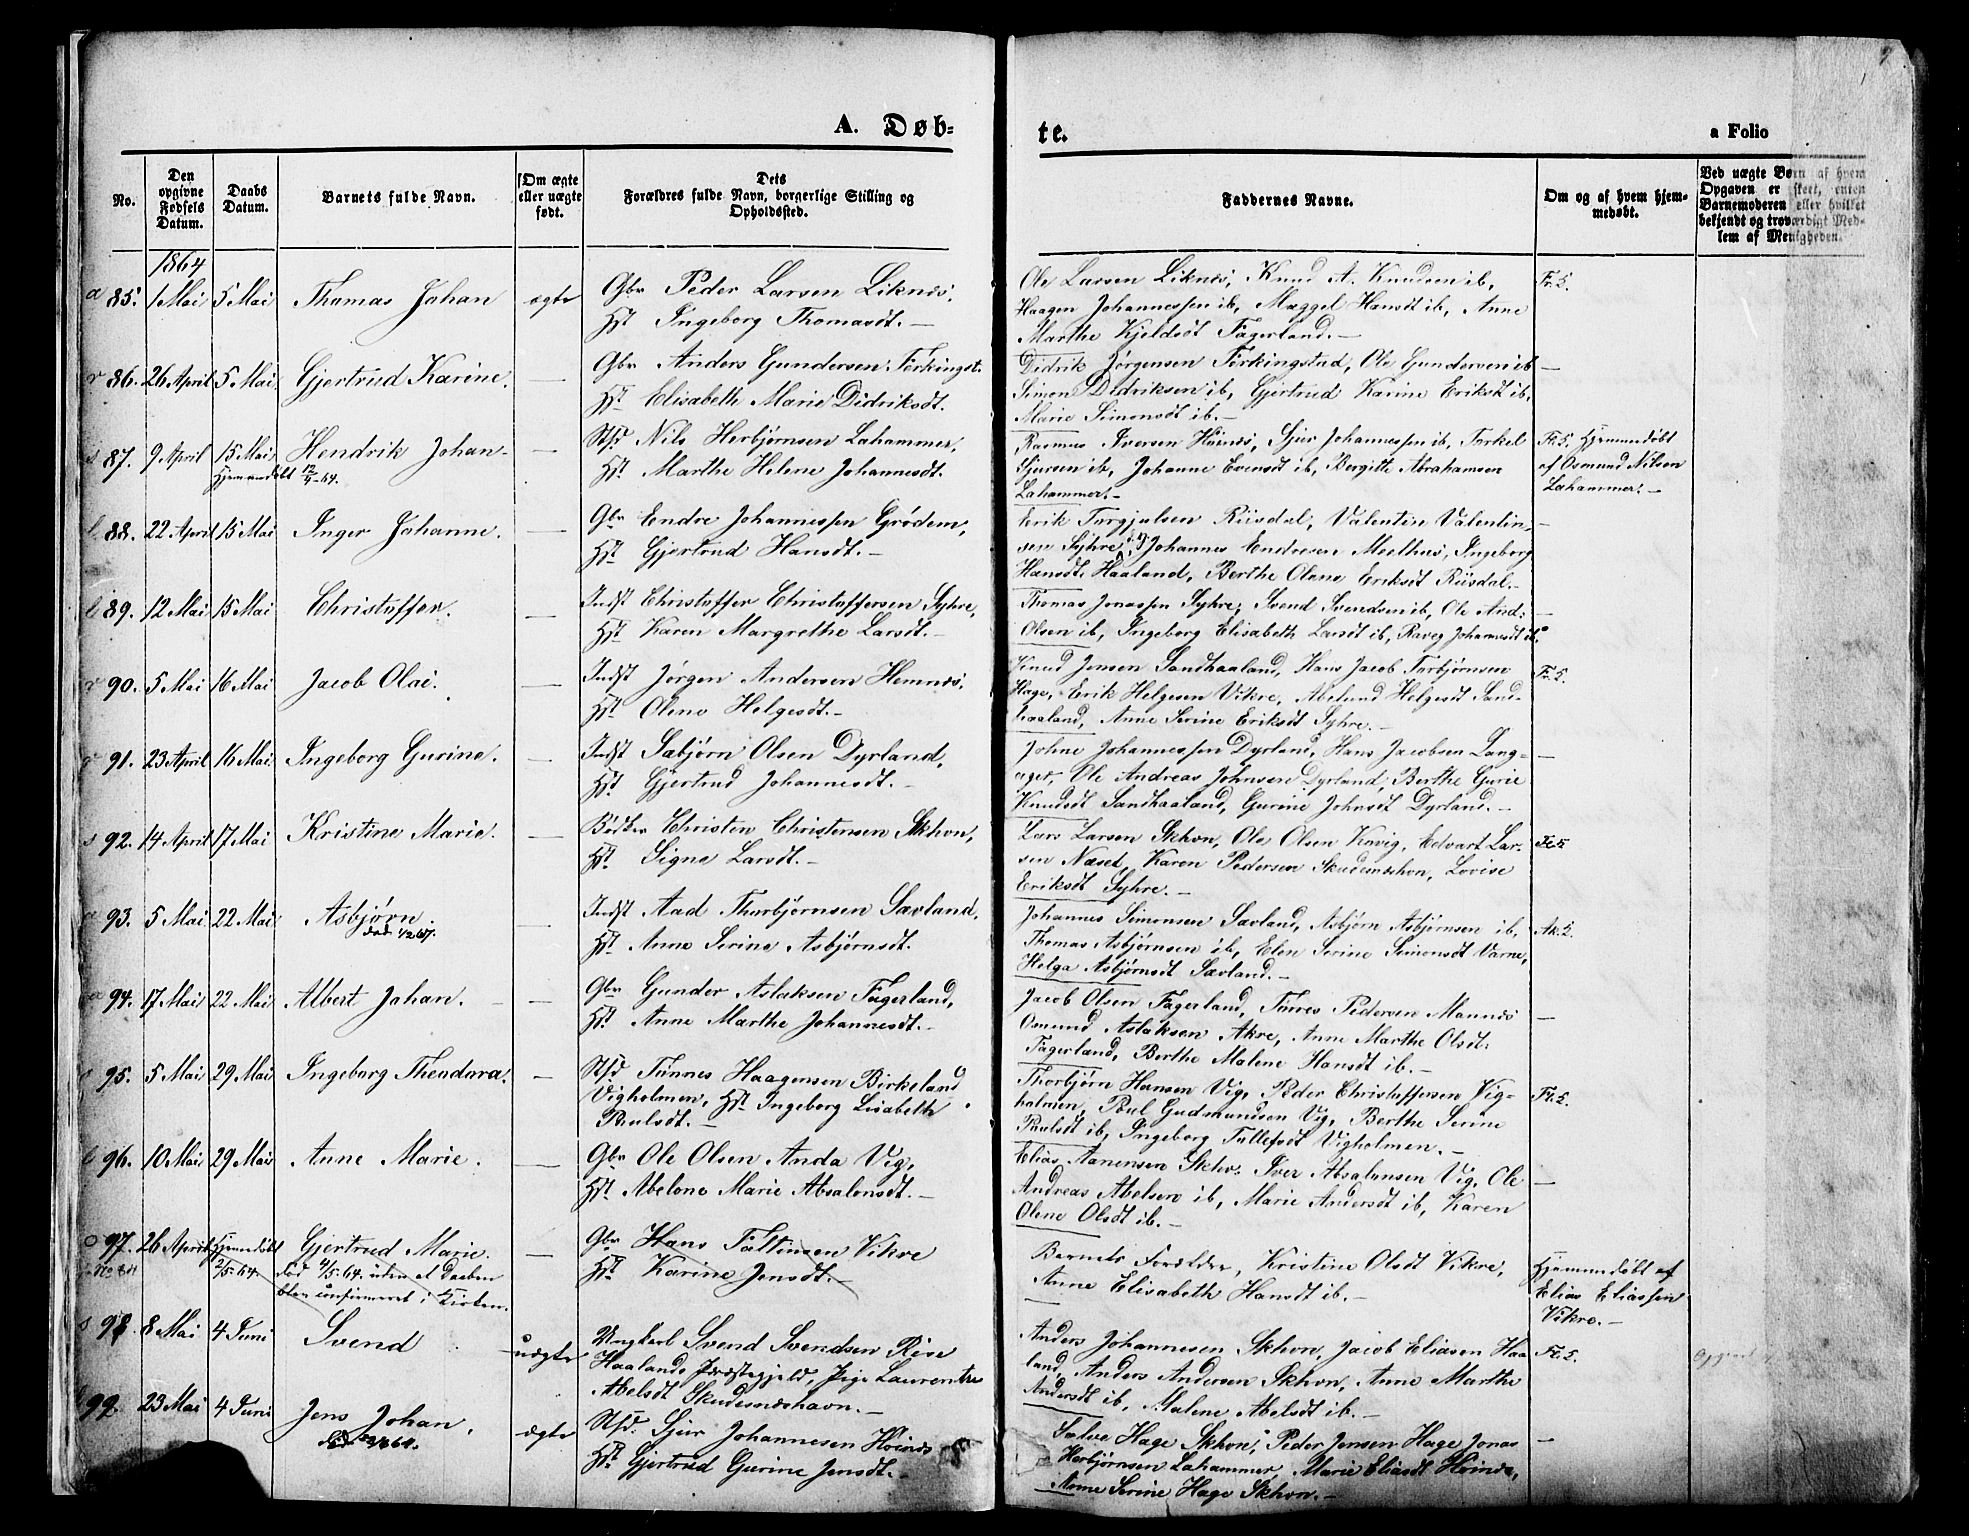 A. Døb-
te.
a Folio
No.
Den opgivne Fødsels Datum.
Daabs Datum.
Barnets fulde Navn.
Om ægte eller uægte født.
Dets Forældres fulde Navn, borgerlige Stilling og Opholdssted.
Faddernes Navne.
Om og af hvem hjemmedøbt.
Ved uægte Børn af hvem Opgaven er skeet, enten Barnemoderen eller hvilket bekjendt og troværdigt Medlem af Menigheden.
1864
85. 1 Mai 5 Mai Thomas Johan ægte Gbr Peder Larsen Liknes,
Hst Ingeborg Thomasdt.
Ole Larsen Liknes, Knud A. Knudsen ib, Fr. 5.
Haagen Johannessen ib, Maggel Hansdt ib, Anne
Marthe Kjeldsdt Fagerland.
86. 26 April 5 Mai Gjertrud Karine. — Gbr Anders Gundersen Ferkingst.
Hst Elisabeth Marie Didriksdt.
Didrik Jørgensen Ferkingstad, Ole Gundersen ib —
Simon Didriksen ib, Gjertrud Karine Eriksdt ib,
Marie Simonsdt ib.
87. 9 April 15 Mai Hendrik Johan — Nils Herbjørnsen Lahammer,
Hjemmedøbt 12/4-64.
Hst Marthe Helene Johannesdt.
Rasmus Iversen Høines, Sjur Johannessen ib, Torkel Fr. 5. Hjemmedøbt
Sjursen ib, Johanne Evensdt ib, Bergitte Abrahamsen af Osmund Nilsen
Lahammer. Lahammer.
88. 22 April 15 Mai Inger Johanne. — Gbr Endre Johannessen Grødem,
Hst Gjertrud Hansdt.
Erik Torgjulsen Riisdal, Valentin Valentin- —
sen Syhre, Johannes Endresen Meelhus, Ingeborg
Hansdt. Haaland, Berthe Olene Eriksdt Riisdal.
89. 12 Mai 15 Mai Christoffer. — Indst Christoffer Christoffersen Syhre,
Hst Karen Margrethe Larsdt.
Thomas Jonassen Syhre, Svend Svendsen ib, Ole And: —
Olsen ib, Ingeborg Elisabeth Larsdt ib, Raveg Johannesdt ib.
90. 5 Mai 16 Mai Jacob Olai. — Indst Jørgen Andersen Hemnes,
Hst Olene Helgesdt.
Knud Jensen Sandhaaland, Hans Jacob Torbjørnsen Fr. 5.
Hage, Erik Helgesen Vikre, Abelund Helgesdt Sand-
haaland, Anne Serine Eriksdt Syhre.
91. 23 April 16 Mai Ingeborg Gurine. — Indst Sabjørn Olsen Dyrland,
Hst Gjertrud Johannesdt.
Johne Johannessen Dyrland, Hans Jacobsen Lang- —
ager, Ole Andreas Johnsen Dyrland, Berthe Gurie
Knudsdt Sandhaaland, Gurine Johnsdt Dyrland.
92. 14 April 17 Mai Kristine Marie. — Bødker Christen Christensen Skhvn,
Hst Signe Larsdt.
Lars Larsen Skhvn, Ole Olsen Kavig, Edvart Lar- Fr. 5
sen Næset, Karen Pedersen Skudeneshvn, Lovise
Eriksdt Syhre.
93. 5 Mai 22 Mai Asbjørn. — Indst Aad Thorbjørnsen Søvland,
død 1/2 67.
Hst Anne Serine Asbjørnsdt.
Johannes Simonsen Søvland, Asbjørn Asbjørnsen ib, Ak. 5.
Thomas Asbjørnsen ib, Elen Serine Simonsdt Varne,
Helga Asbjørnsdt Søvland.
94. 17 Mai 22 Mai Albert Johan. — Gbr Gunder Aslaksen Fagerland,
Hst Anne Marthe Johannesdt.
Jacob Olsen Fagerland, Tønnes Pedersen Mannes —
Osmund Aslaksen Akre, Anne Marthe Olsdt
Fagerland, Berthe Malene Hansdt ib.
95. 5 Mai 29 Mai Ingeborg Theodora. — Tønnes Haagensen Birkeland
Vigholmen, Hst Ingeborg Lisabeth
Paulsdt.
Thorbjørn Hansen Vig, Peder Christoffersen Vig- Fr. 5.
holmen, Poul Gudmundsen Vig, Berthe Serine
Paulsdt ib, Ingeborg Tollefsdt Vigholmen.
96. 10 Mai 29 Mai Anne Marie. — Gbr Ole Olsen Anda Vig,
Hst Abelone Marie Absalonsdt.
Elias Aanensen Skhv. Iver Absalonsen Vig, Ole —
Andreas Abelsen ib, Marie Andersdt ib, Karen
Olene Olsdt ib.
97. 26 April Hjemmedøbt Gjertrud Marie. — Gbr Hans Faltinsen Vikre
2/5-64. død 4/5.64. uden at Daaben Hst Karine Jensdt.
blev confirmeret i Kirken.
Barnets Forældre, Kristine Olsdt Vikre, Hjemmedøbt af
Anne Elisabeth Hansdt ib. Elias Eliassen
Vikre.
98. 8 Mai 4 Juni Svend uægte Ungkarl Svend Svendsen Rise
Haalands Præstegjeld, Pige Laurentse
Abelsdt Skudesneshavn.
Anders Johannesen Skhvn, Jacob Eliasen Haa Fr. 5.
land, Anders Andersen Skhvn, Anne Marthe
Andersdt ib, Malene Abelsdt ib.
99. 23 Mai 4 Juni Jens Johan, ægte Sjur Johannesen Høines
Hst Gjertrud Gurine Jensdt.
Salve Hage Skhvn, Peder Jensen Hage Jonas —
Herbjørnsen Lahammer, Marie Eliasdt Høines,
Anne Serine Hage Skhvn.